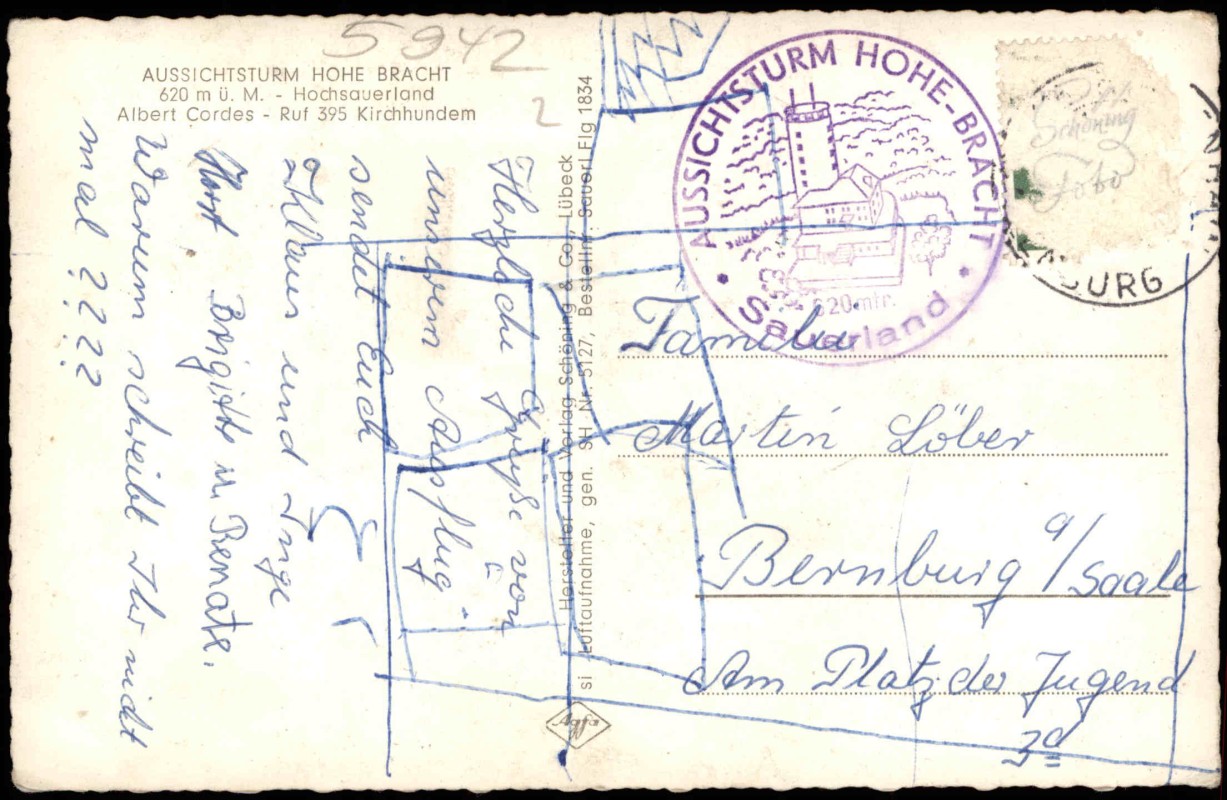 5942
2
AUSSICHTSTURM HOHE BRACHT
620 m ü. M. - Hochsauerland
Albert Cordes - Ruf 395 Kirchhundem
Herzliche Grüße von
unserem Ausflug
sendet Euch
Klaus und Inge
Horst Brigitte u Renate.
Warum schreibt Ihr nicht
mal ????
Hersteller und Verlag Schöning & Co., Lübeck
si Luftaufnahme, gen. SH Nr. 5127, Bestellnr. Sauerl Flg 1834
Agfa
AUSSICHTSTURM HOHE-BRACHT
620 mtr.
Sauerland
Schöning
Foto
BURG
Familie
Martin Löber
Bernburg a/Saale
Am Platz der Jugend